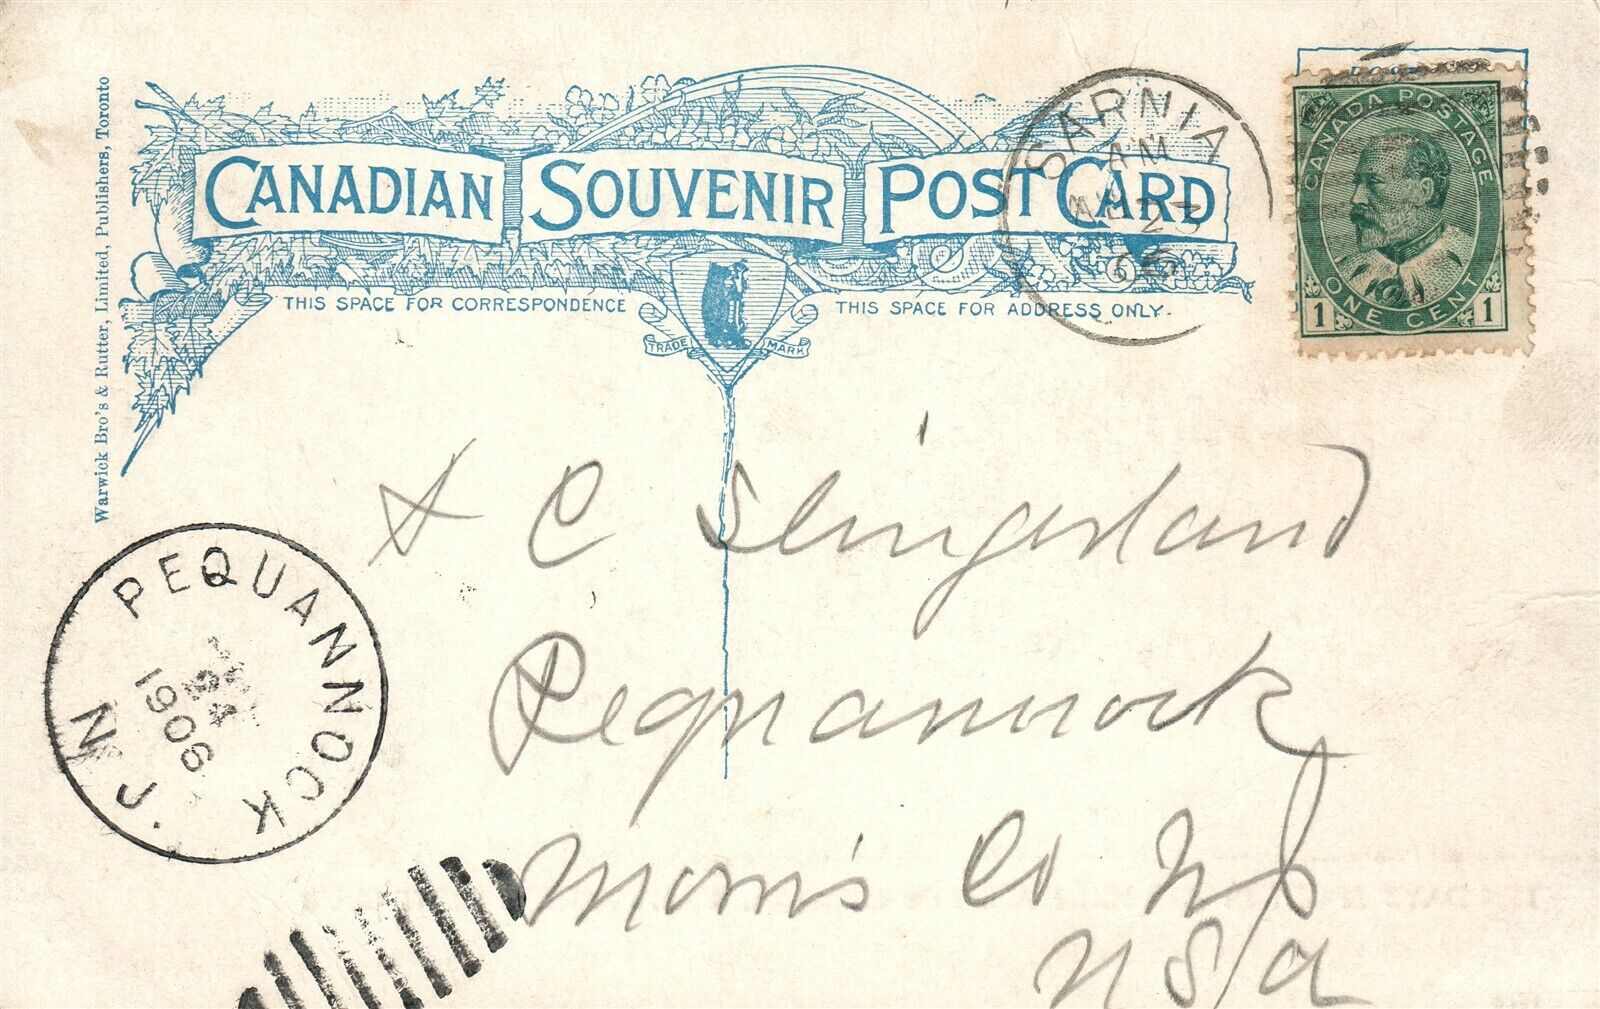 Warwick Bro's & Rutter, Limited, Publishers, Toronto
CANADIAN SOUVENIR POST CARD
THIS SPACE FOR CORRESPONDENCE
THIS SPACE FOR ADDRESS ONLY.
TRADE MARK
SARNIA
AM
23
06
CANADA POSTAGE
1 ONE CENT 1
C Slingerland
Pequannock
Morris Co NJ
USA
PEQUANNOCK N.J.
24
1906